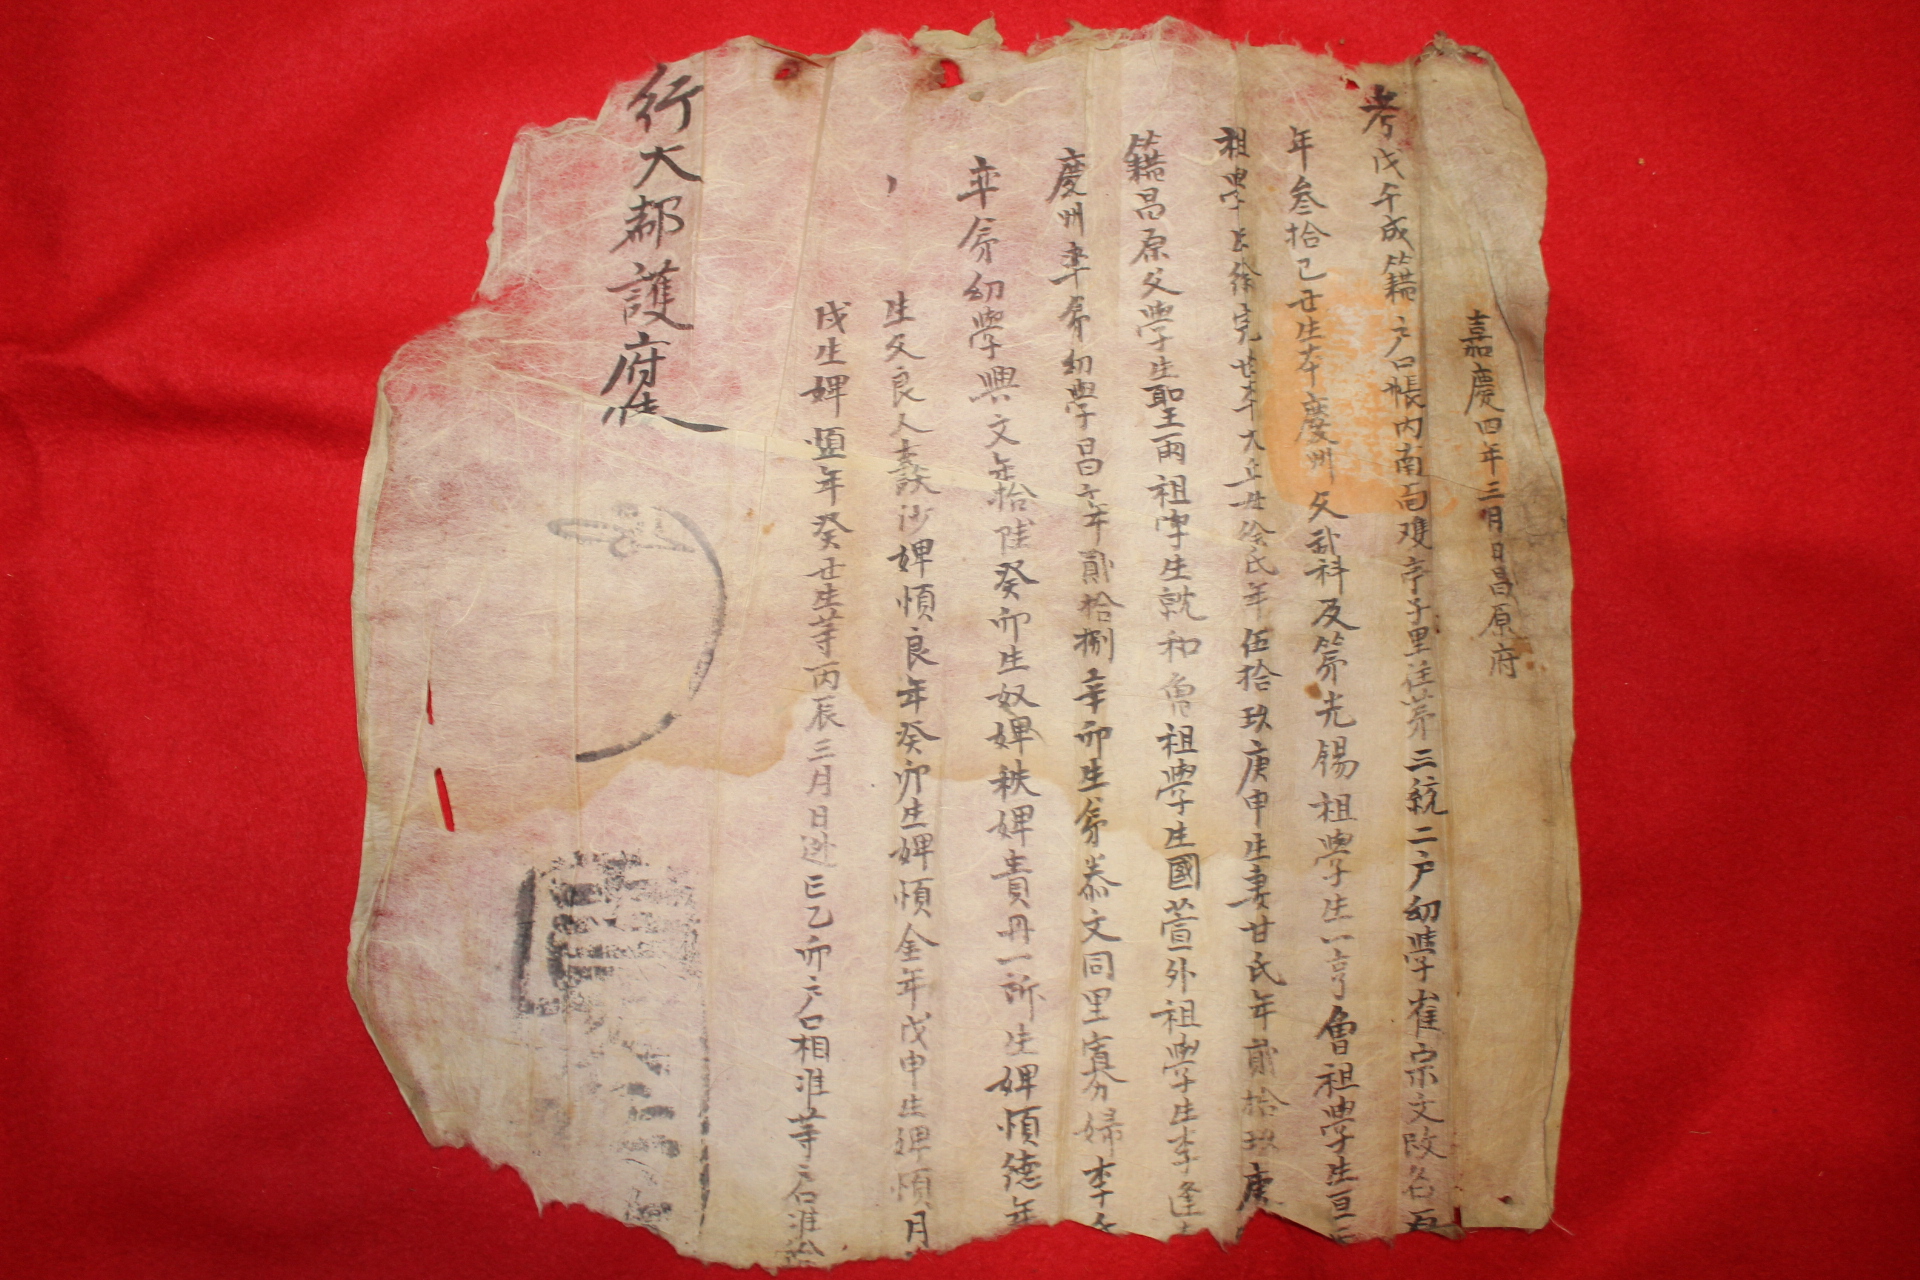 嘉慶四年三月日昌原府
考戊午成籍戶口帳內南面難亭子里住第三統二戶幼學崔宗文改名
年叁拾己丑生本慶州父武科及第光錫祖學生一亨曾祖學生
祖學生徐完世本大丘母徐氏年伍拾玖庚申生妻甘氏年貳拾玖庚
籍昌原父學生聖雨祖學生就和曾祖學生國萱外祖學生李逢
慶州率弟幼學昌文年貳拾捌辛卯生弟泰文同里寡弟婦李
率弟幼學興文年拾陸癸卯生奴婢秩婢貴丹一所生婢順德年
生父良人 沙婢順良年癸卯生婢順金年戊申生婢順月
戌生婢 年癸丑生等丙辰三月日逃亡乙卯戶口相准等右准給
行大都護府使